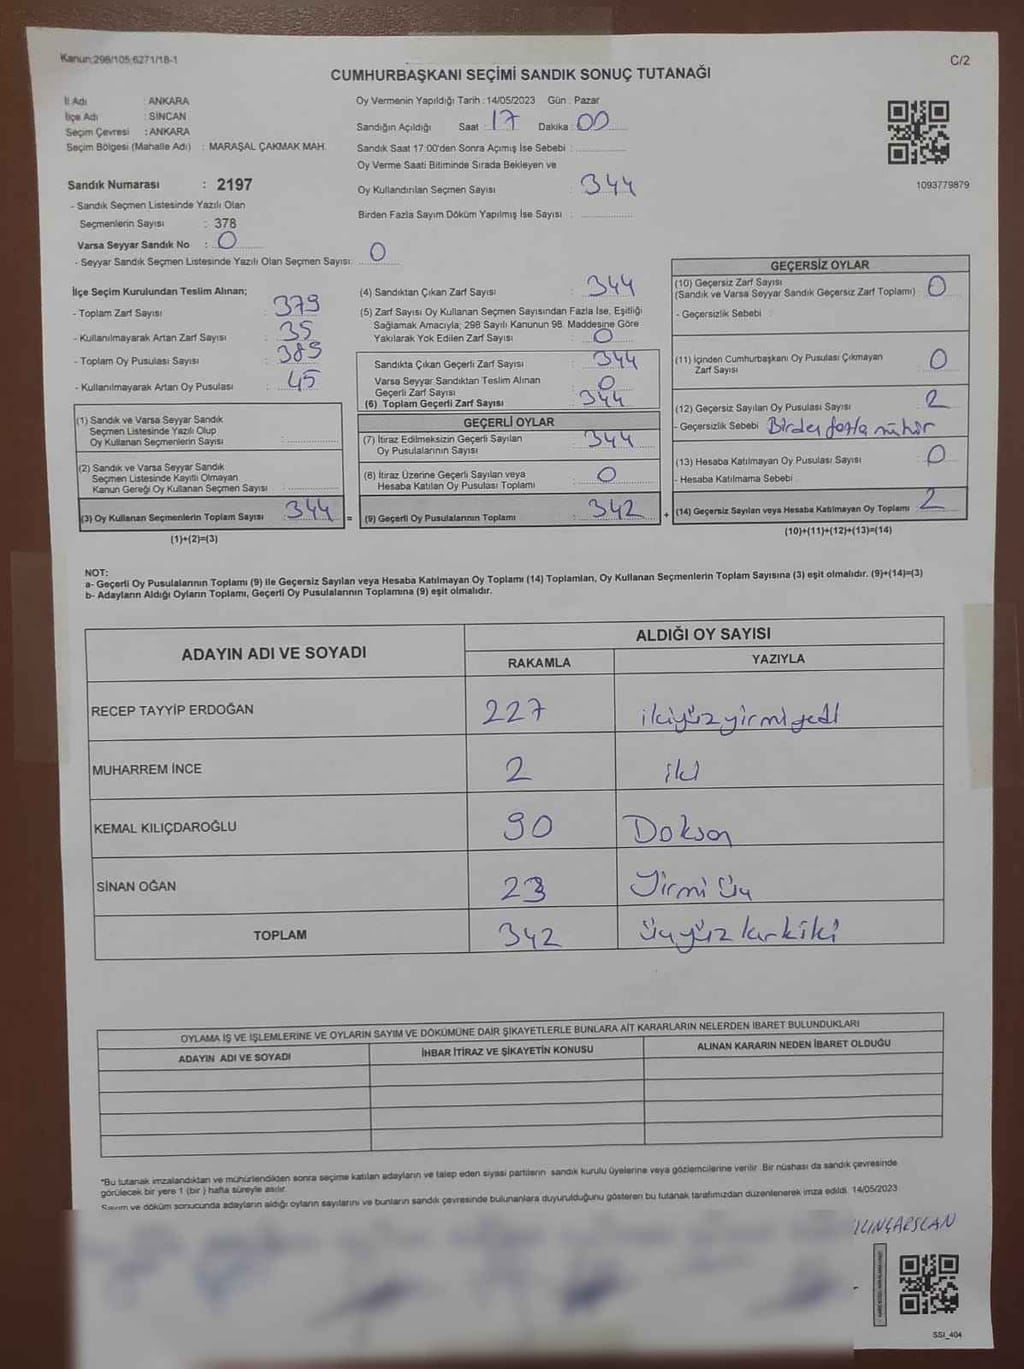 Kanun;298/105;6271/18-1
C/2
CUMHURBAŞKANI SEÇİMİ SANDIK SONUÇ TUTANAĞI
İl Adı : ANKARA
İlçe Adı : SİNCAN
Seçim Çevresi : ANKARA
Seçim Bölgesi (Mahalle Adı) : MARAŞAL ÇAKMAK MAH.
Sandık Numarası : 2197
- Sandık Seçmen Listesinde Yazılı Olan
Seçmenlerin Sayısı : 378
Varsa Seyyar Sandık No : 0
- Seyyar Sandık Seçmen Listesinde Yazılı Olan Seçmen Sayısı: 0
Oy Vermenin Yapıldığı Tarih : 14/05/2023 Gün : Pazar
Sandığın Açıldığı Saat : 17 Dakika : 00
Sandık Saat 17:00'den Sonra Açımış İse Sebebi :
Oy Verme Saati Bitiminde Sırada Bekleyen ve
Oy Kullandırılan Seçmen Sayısı : 344
Birden Fazla Sayım Döküm Yapılmış İse Sayısı :
1093779879
İlçe Seçim Kurulundan Teslim Alınan;
- Toplam Zarf Sayısı : 379
- Kullanılmayarak Artan Zarf Sayısı : 35
- Toplam Oy Pusulası Sayısı : 389
- Kullanılmayarak Artan Oy Pusulası : 45
(1) Sandık ve Varsa Seyyar Sandık
Seçmen Listesinde Yazılı Olup
Oy Kullanan Seçmenlerin Sayısı :
(2) Sandık ve Varsa Seyyar Sandık
Seçmen Listesinde Kayıtlı Olmayan
Kanun Gereği Oy Kullanan Seçmen Sayısı :
(3) Oy Kullanan Seçmenlerin Toplam Sayısı : 344
(1)+(2)=(3)
(4) Sandıktan Çıkan Zarf Sayısı : 344
(5) Zarf Sayısı Oy Kullanan Seçmen Sayısından Fazla İse, Eşitliği
Sağlamak Amacıyla; 298 Sayılı Kanunun 98. Maddesine Göre
Yakılarak Yok Edilen Zarf Sayısı : 0
Sandıkta Çıkan Geçerli Zarf Sayısı : 344
Varsa Seyyar Sandıktan Teslim Alınan
Geçerli Zarf Sayısı : 0
(6) Toplam Geçerli Zarf Sayısı : 344
GEÇERLİ OYLAR
(7) İtiraz Edilmeksizin Geçerli Sayılan
Oy Pusulalarının Sayısı : 344
(8) İtiraz Üzerine Geçerli Sayılan veya
Hesaba Katılan Oy Pusulası Toplamı : 0
= (9) Geçerli Oy Pusulalarının Toplamı : 342 +
GEÇERSİZ OYLAR
(10) Geçersiz Zarf Sayısı
(Sandık ve Varsa Seyyar Sandık Geçersiz Zarf Toplamı) : 0
- Geçersizlik Sebebi :
(11) İçinden Cumhurbaşkanı Oy Pusulası Çıkmayan
Zarf Sayısı : 0
(12) Geçersiz Sayılan Oy Pusulası Sayısı : 2
- Geçersizlik Sebebi : Birden fazla mühür
(13) Hesaba Katılmayan Oy Pusulası Sayısı : 0
- Hesaba Katılmama Sebebi :
(14) Geçersiz Sayılan veya Hesaba Katılmayan Oy Toplamı : 2
(10)+(11)+(12)+(13)=(14)
NOT:
a- Geçerli Oy Pusulalarının Toplamı (9) ile Geçersiz Sayılan veya Hesaba Katılmayan Oy Toplamı (14) Toplamları, Oy Kullanan Seçmenlerin Toplam Sayısına (3) eşit olmalıdır. (9)+(14)=(3)
b- Adayların Aldığı Oyların Toplamı, Geçerli Oy Pusulalarının Toplamına (9) eşit olmalıdır.
ADAYIN ADI VE SOYADI ALDIĞI OY SAYISI
RAKAMLA YAZIYLA
RECEP TAYYİP ERDOĞAN 227 ikiyüzyirmiyedi
MUHARREM İNCE 2 iki
KEMAL KILIÇDAROĞLU 90 Doksan
SİNAN OĞAN 23 Yirmi üç
TOPLAM 342 üçyüz kırkiki
OYLAMA İŞ VE İŞLEMLERİNE VE OYLARIN SAYIM VE DÖKÜMÜNE DAİR ŞİKAYETLERLE BUNLARA AİT KARARLARIN NELERDEN İBARET BULUNDUKLARI
ADAYIN ADI VE SOYADI İHBAR İTİRAZ VE ŞİKAYETİN KONUSU ALINAN KARARIN NEDEN İBARET OLDUĞU
*Bu tutanak imzalandıktan ve mühürlendikten sonra seçime katılan adayların ve talep eden siyasi partilerin sandık kurulu üyelerine veya gözlemcilerine verilir. Bir nüshası da sandık çevresinde
görülecek bir yere 1 (bir) hafta süreyle asılır.
Sayım ve döküm sonucunda adayların aldığı oyların sayılarını ve bunların sandık çevresinde bulunanlara duyurulduğunu gösteren bu tutanak tarafımızdan düzenlenerek imza edildi. 14/05/2023
SSI_404